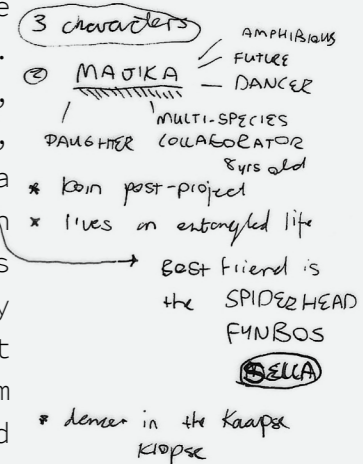 3 characters
② MAJIKA
AMPHIBIOUS
FUTURE
DANCER
MULTI-SPECIES
DAUGHTER COLLABORATOR
8yrs old
* born post-project
* lives an entangled life
Best friend is
the SPIDERHEAD
FYNBOS
* dancer in the Kaapse
Klopse